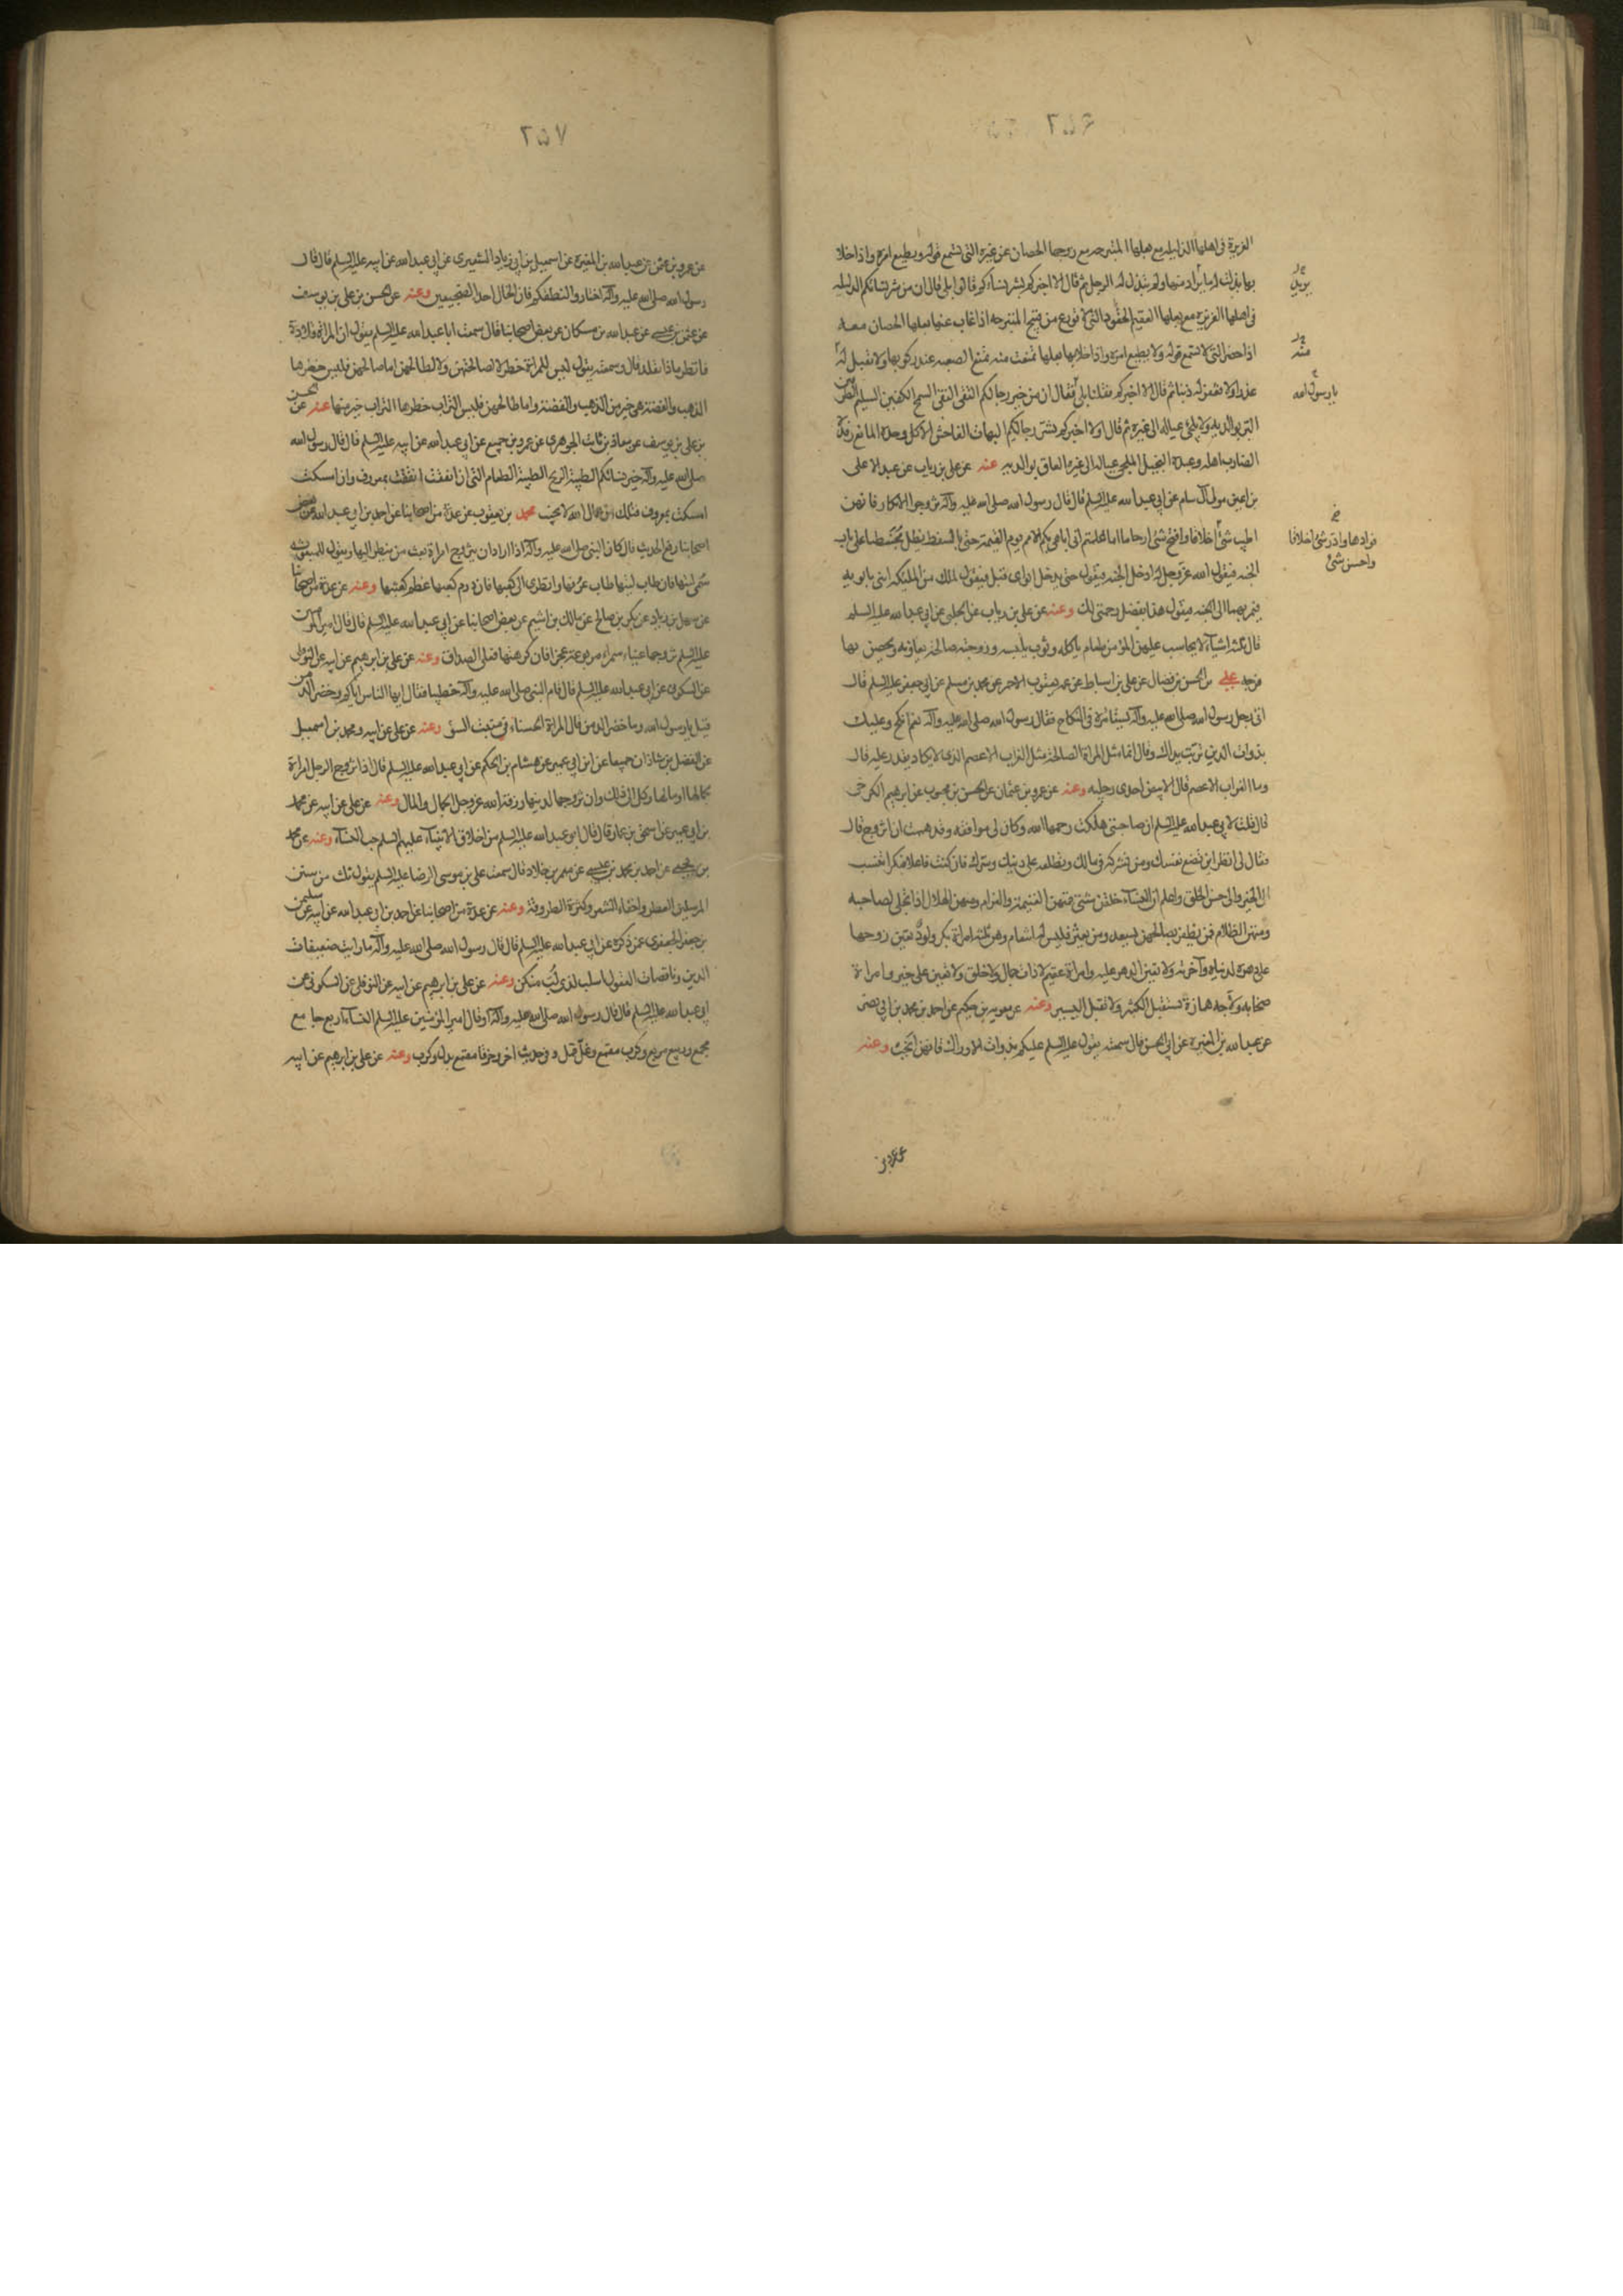 ٢٥۶
العزيزة فى اهلها الذليله مع بعلها المتبرجه مع زوجها الحصان عن غيره التى تسمع قوله وتطيع امره واذا خلا
بها بذلت له ما يراد منها ولم تبذل له الرجل ثم قال الا اخبركم بشر نساءكم قالوا بلى قال ان من شر نسائكم الذليله
فى اهلها العزيزه مع بعلها العقيم الحقود التى لا تورع من قبيح المتبرجه اذا غاب عنها بعلها الحصان معه
اذا حضر التى لا تسمع قوله ولا تطيع امره واذا خلا بها بعلها تمنعت منه تمنع الصعبه عند ركوبها ولا تقبل له
عذرا ولا تغفر له ذنبا ثم قال الا اخبركم فقلنا بلى فقال ان من خير رجالكم التقى النقى السمح الكفين السليم الطرفين
البر بوالديه ولا يلجئ عياله الى غيره ثم قال اولا اخبركم بشر رجالكم البهات الفاحش الاكل وحده المانع رفده
الضارب اهله وعبده البخيل الملجئ عياله الى غيره العاق بوالديه عنه عن على بن رياب عن عبد الاعلى
بن اعين مولى آل سام عن ابى عبد الله عليه السلم قال قال رسول الله صلى الله عليه وآله تزوجوا الابكار فانهن
اطيب شئ اخلاقا وافتح شئ ارحاما اما علمتم انى اباهى بكم الامم يوم القيمة حتى بالسقط يظل محبنطئا على باب
الجنه فيقول الله عز وجل له ادخل الجنه فيقول حتى يدخل ابواى قبلى فيقول لملك من الملئكه ايتنى بابويه
فيامر بهما الى الجنه فيقول هذا بفضل رحمتى لك وعنه عن على بن رياب عن الحلبى عن ابى عبد الله عليه السلم
قال ثلثة اشيآء لا يحاسب عليهن المؤمن طعام ياكله وثوب يلبسه وزوجة صالحة تعاونه ويحصن بها
فرجه على بن الحسن بن فضال عن على بن اسباط عن عمه يعقوب الاحمر عن محمد بن مسلم عن ابى جعفر عليه السلم قال
اتى رجل رسول الله صلى الله عليه وآله يستامره فى النكاح فقال رسول الله صلى الله عليه وآله نعم انكح وعليك
بذوات الدين تربت يداك وقال انما مثل المراة الصالحة مثل الغراب الاعصم الذى لا يكاد يقدر عليه قال
وما الغراب الاعصم قال الابيض احدى رجليه وعنه عن عمرو بن عثمان عن الحسن بن محبوب عن ابرهيم الكرخى
قال قلت لابى عبد الله عليه السلم ان صاحبتى هلكت رحمها الله وكان لى موافقه وقد هممت ان اتزوج قال
فقال لى انظر اين تضع نفسك ومن تشركه فى مالك وتطلعه على دينك وسرك فان كنت فاعلا فبكرا تنسب
الى الخير والى حسن الخلق واعلم ان النسآء خلقن شتى فمنهن الغنيمة والغرام ومنهن الهلال اذا تجلى لصاحبه
ومنهن الظلام فمن يظفر بصالحهن يسعد ومن يعثر فليس له انتقام وهن ثلث امراة بكر ولود تعين زوجها
على دهره لدنياه وآخرته ولا تعين الدهر عليه وامراة عقيم لا ذات جمال ولا خلق ولا تعين على خير وامراة
صخابه ولاجه همازة تستقبل الكثير ولا تقبل اليسير وعنه عن معويه بن حكيم عن احمد بن محمد بن ابى نصر
عن عبد الله بن المغيرة عن ابى الحسن قال سمعته يقول عليه السلم عليكم بذوات الاوراك فانهن انجب وعنه
يريد
منه
يا رسول الله
افواها وادر شئ اخلافا
واحسن شئ
عن عمرو بن
٢٥٧
عن عمرو بن عثمن عن عبد الله بن المغيرة عن اسمعيل بن ابى زياد الشعيرى عن ابى عبد الله عن ابيه عليه السلم قال قال
رسول الله صلى الله عليه وآله اختاروا لنطفكم فان الخال احد الضجيعين وعنه عن الحسن بن على بن يوسف
عن عثمن بن عيسى عن عبد الله بن مسكان عن بعض اصحابنا قال سمعت ابا عبد الله عليه السلم يقول ان المراة قلادة
فانظر ماذا تقلد قال وسمعته يقول ليس للمراة خطر لا لصالحتهن ولا لطالحتهن اما صالحتهن فليس خطرها
الذهب والفضة هى خير من الذهب والفضة واما طالحتهن فليس التراب خطرها التراب خير منها عنه عن الحسن
بن على بن يوسف عن معاذ بن ثابت الجوهرى عن عمرو بن جميع عن ابى عبد الله عن ابيه عليه السلم قال قال رسول الله
صلى الله عليه وآله خير نسائكم الطيبة الريح الطيبة الطعام التى ان انفقت انفقت بمعروف وان امسكت
امسكت بمعروف فتلك من عمال الله لا يخيب محمد بن يعقوب عن عدة من اصحابنا عن احمد بن ابى عبد الله عن بعض
اصحابنا رفع الحديث قال كان النبى صلى الله عليه وآله اذا اراد ان يتزوج امراة بعث من ينظر اليها ويقول للمبعوثة
شمى ليتها فان طاب ليتها طاب عرفها وانظرى الى كعبها فان درم كعبها عظم كعثبها وعنه عن عدة من اصحابنا
عن سهل بن زياد عن بكر بن صالح عن مالك بن اشيم عن بعض اصحابنا عن ابى عبد الله عليه السلم قال قال امير المؤمنين
عليه السلم تزوجها عيناء سمراء مربوعة عجزا فان كرهتها فعلى الصداق وعنه عن على بن ابرهيم عن ابيه عن النوفلى
عن السكونى عن ابى عبد الله عليه السلم قال قام النبى صلى الله عليه وآله خطيبا فقال ايها الناس اياكم وخضر الدمن
قيل يا رسول الله وما خضر الدمن قال المراة الحسناء فى منبت السوء وعنه عن على عن ابيه ومحمد بن اسمعيل
عن الفضل بن شاذان جميعا عن ابن ابى عمير عن هشام بن الحكم عن ابى عبد الله عليه السلم قال اذا تزوج الرجل امراة
لجمالها او مالها وكل الى ذلك وان تزوجها لدينها رزقه الله عز وجل الجمال والمال وعنه عن على عن ابيه عن محمد
بن ابى عمير عن اسحق بن عمار قال قال ابو عبد الله عليه السلم من اخلاق الانبيآء عليهم السلم حب النسآء وعنه عن محمد
بن يحيى عن احمد بن محمد بن عيسى عن معمر بن خلاد قال سمعت على بن موسى الرضا عليه السلم يقول ثلث من سنن
المرسلين العطر واحفاء الشعر وكثرة الطروقة وعنه عن عدة من اصحابنا عن احمد بن ابى عبد الله عن ابيه عن سليمن
بن جعفر الجعفرى عمن ذكره عن ابى عبد الله عليه السلم قال قال رسول الله صلى الله عليه وآله ما رايت ضعيفات
الدين وناقصات العقول اسلب لذى لب منكن وعنه عن على بن ابرهيم عن ابيه عن النوفلى عن السكونى عن
ابى عبد الله عليه السلم قال قال رسول الله صلى الله عليه وآله او قال امير المؤمنين عليه السلم النسآء اربع جامع
مجمع وربيع مربع وكرب مقمع وغل قمل وفى حديث اخر وخرقا مقمع بدل وكرب وعنه عن على بن ابرهيم عن ابيه